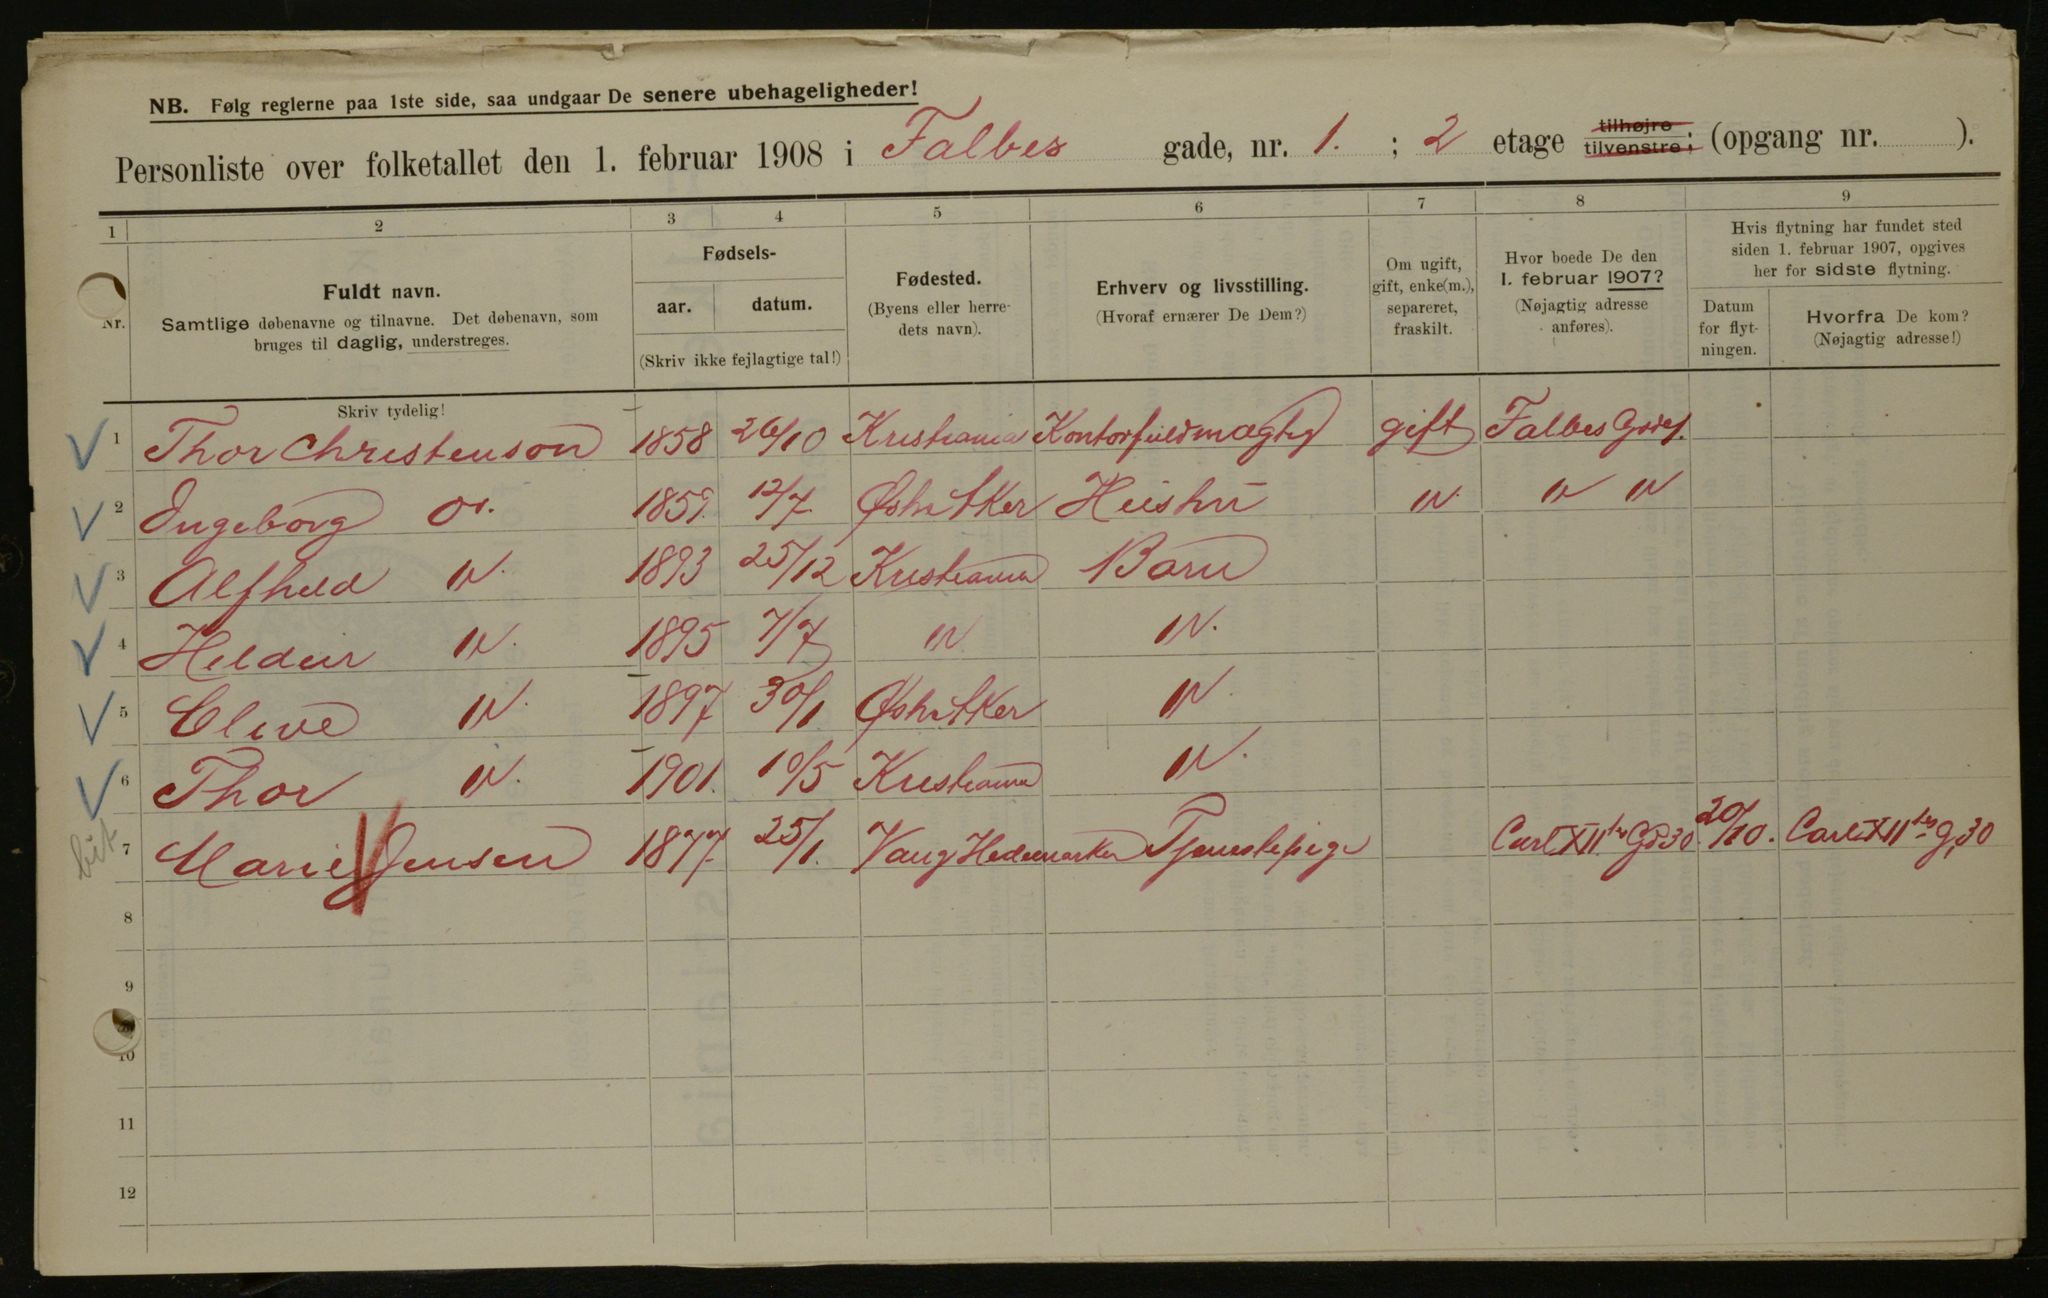 NB. Følg reglerne paa 1ste side, saa undgaar De senere ubehageligheder!
Personliste over folketallet den 1. februar 1908 i Falbes gade, nr. 1. ; 2 etage tilhøjre tilvenstre; (opgang nr. ).
1 2 3 4 5 6 7 8 9
Nr.
Fuldt navn.
Samtlige døbenavne og tilnavne. Det døbenavn, som
bruges til daglig, understreges.
Skriv tydelig!
Fødsels-
aar. datum.
(Skriv ikke fejlagtige tal!)
Fødested.
(Byens eller herre-
dets navn).
Erhverv og livsstilling.
(Hvoraf ernærer De Dem?)
Om ugift,
gift, enke(m.),
separeret,
fraskilt.
Hvor boede De den
1. februar 1907?
(Nøjagtig adresse
anføres).
Hvis flytning har fundet sted
siden 1. februar 1907, opgives
her for sidste flytning.
Datum
for flyt-
ningen.
Hvorfra De kom?
(Nøjagtig adresse!)
1 Thor Christenson 1858 26/10 Kristiania Kontorfuldmægtig gift Falbes Gd 1.
2 Ingeborg 1859. 12/7. Østr Aker Hustru " " "
3 Alfhild " 1893 25/12 Kristiania Barn
4 " 1895 7/7 " "
5 " 1897 30/1 Østr Aker "
6 Thor " 1901. 10/5 Kristiania "
7 Marie Jensen 1877. 25/1. Vang Hedemarken Tjenestepige Carl XII tes Gd 30. 20/10. Carl XII tes G. 30
bit
8
9
10
11
12